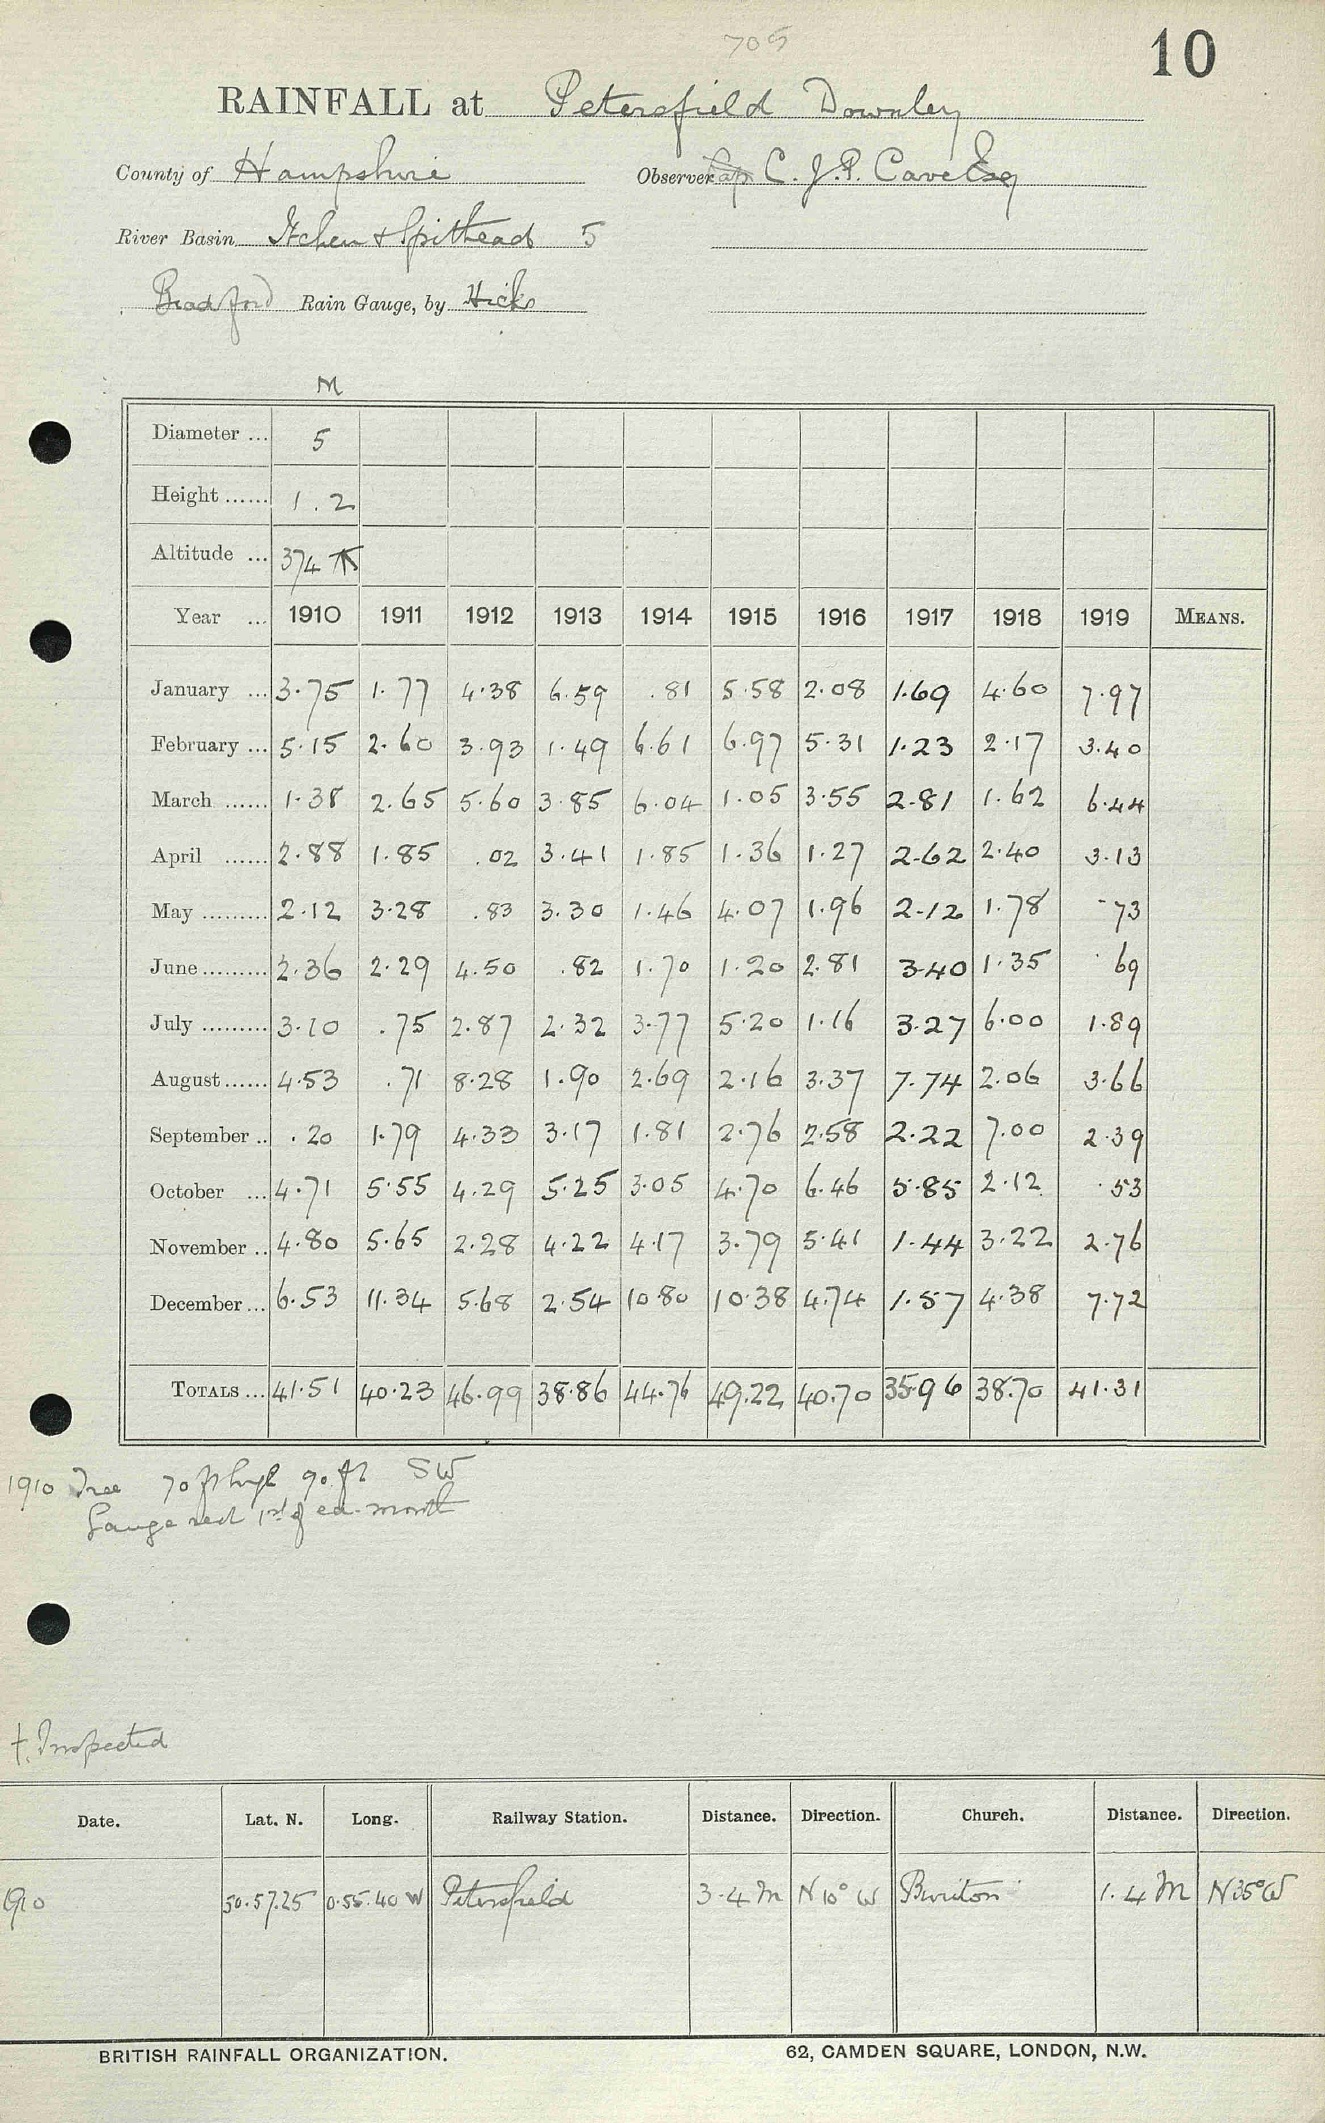 705
10
RAINFALL at Petersfield Downley
County of Hampshire Observer C. J. P. Cave Esq
River Basin Itchen & Spithead 5
Bradford Rain Gauge, by Hicks
M
Diameter ... 5
Height ...... 1.2
Altitude ... 374
Year ... 1910 1911 1912 1913 1914 1915 1916 1917 1918 1919 MEANS.
January ... 3.75 1.77 4.38 6.59 .81 5.58 2.08 1.69 4.60 7.97
February ... 5.15 2.60 3.93 1.49 6.61 6.97 5.31 1.23 2.17 3.40
March ...... 1.38 2.65 5.60 3.85 6.04 1.05 3.55 2.81 1.62 6.44
April ...... 2.88 1.85 .02 3.41 1.85 1.36 1.27 2.62 2.40 3.13
May ......... 2.12 3.28 .83 3.30 1.46 4.07 1.96 2.12 1.78 .73
June ......... 2.36 2.29 4.50 .82 1.70 1.20 2.81 3.40 1.35 .69
July ......... 3.10 .75 2.87 2.32 3.77 5.20 1.16 3.27 6.00 1.89
August ...... 4.53 .71 8.28 1.90 2.69 2.16 3.37 7.74 2.06 3.66
September .. .20 1.79 4.33 3.17 1.81 2.76 2.58 2.22 7.00 2.39
October ... 4.71 5.55 4.29 5.25 3.05 4.70 6.46 5.85 2.12 .53
November .. 4.80 5.65 2.28 4.22 4.17 3.79 5.41 1.44 3.22 2.76
December ... 6.53 11.34 5.68 2.54 10.80 10.38 4.74 1.57 4.38 7.72
TOTALS ... 41.51 40.23 46.99 38.86 44.76 49.22 40.70 35.96 38.70 41.31
1910 Tree 70 ft high 90 ft SW
Gauge read 1st of ea. month
†. Inspected
Date. Lat. N. Long. Railway Station. Distance. Direction. Church. Distance. Direction.
1910 50.57.25 0.55.40 W Petersfield 3.4 M N 10° W Buriton 1.4 M N 35° W
BRITISH RAINFALL ORGANIZATION. 62, CAMDEN SQUARE, LONDON, N.W.